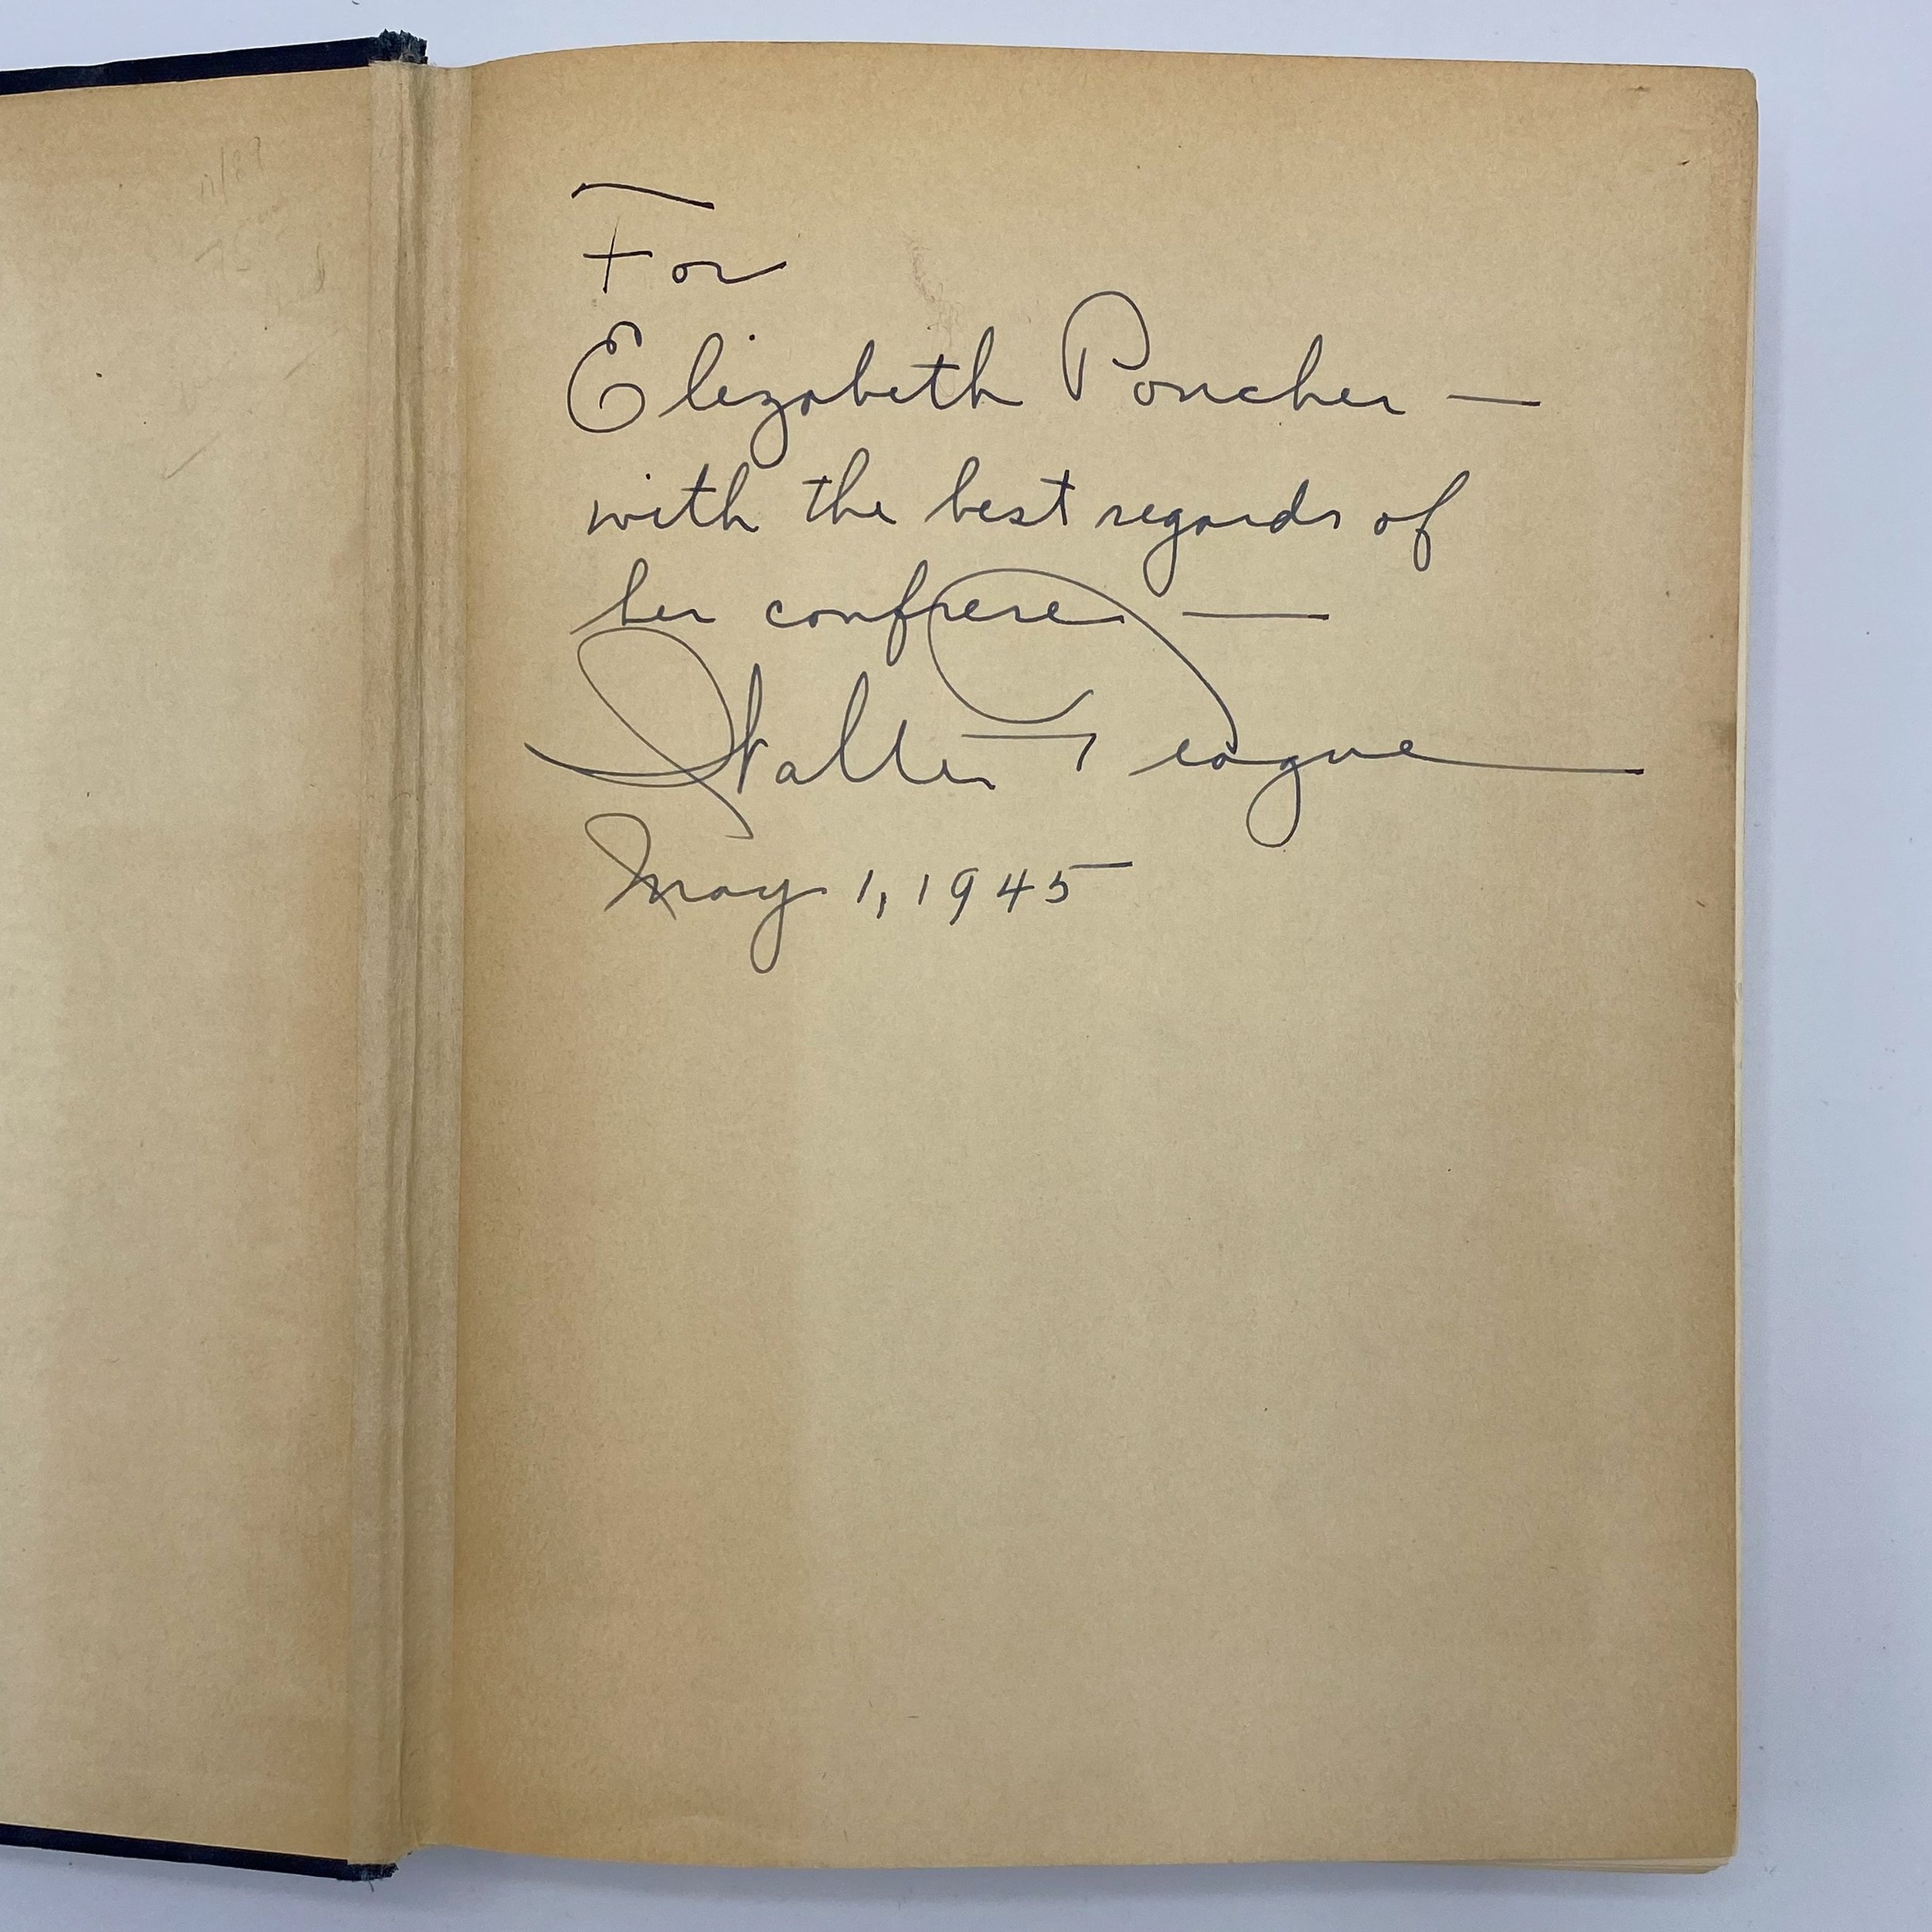 For
Elizabeth Poucher —
with the best regards of
her confrere —
Walter Teague
May 1, 1945